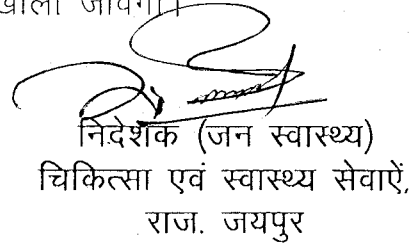 खोली जावेगी।
निदेशक (जन स्वास्थ्य)
चिकित्सा एवं स्वास्थ्य सेवाऐं,
राज. जयपुर